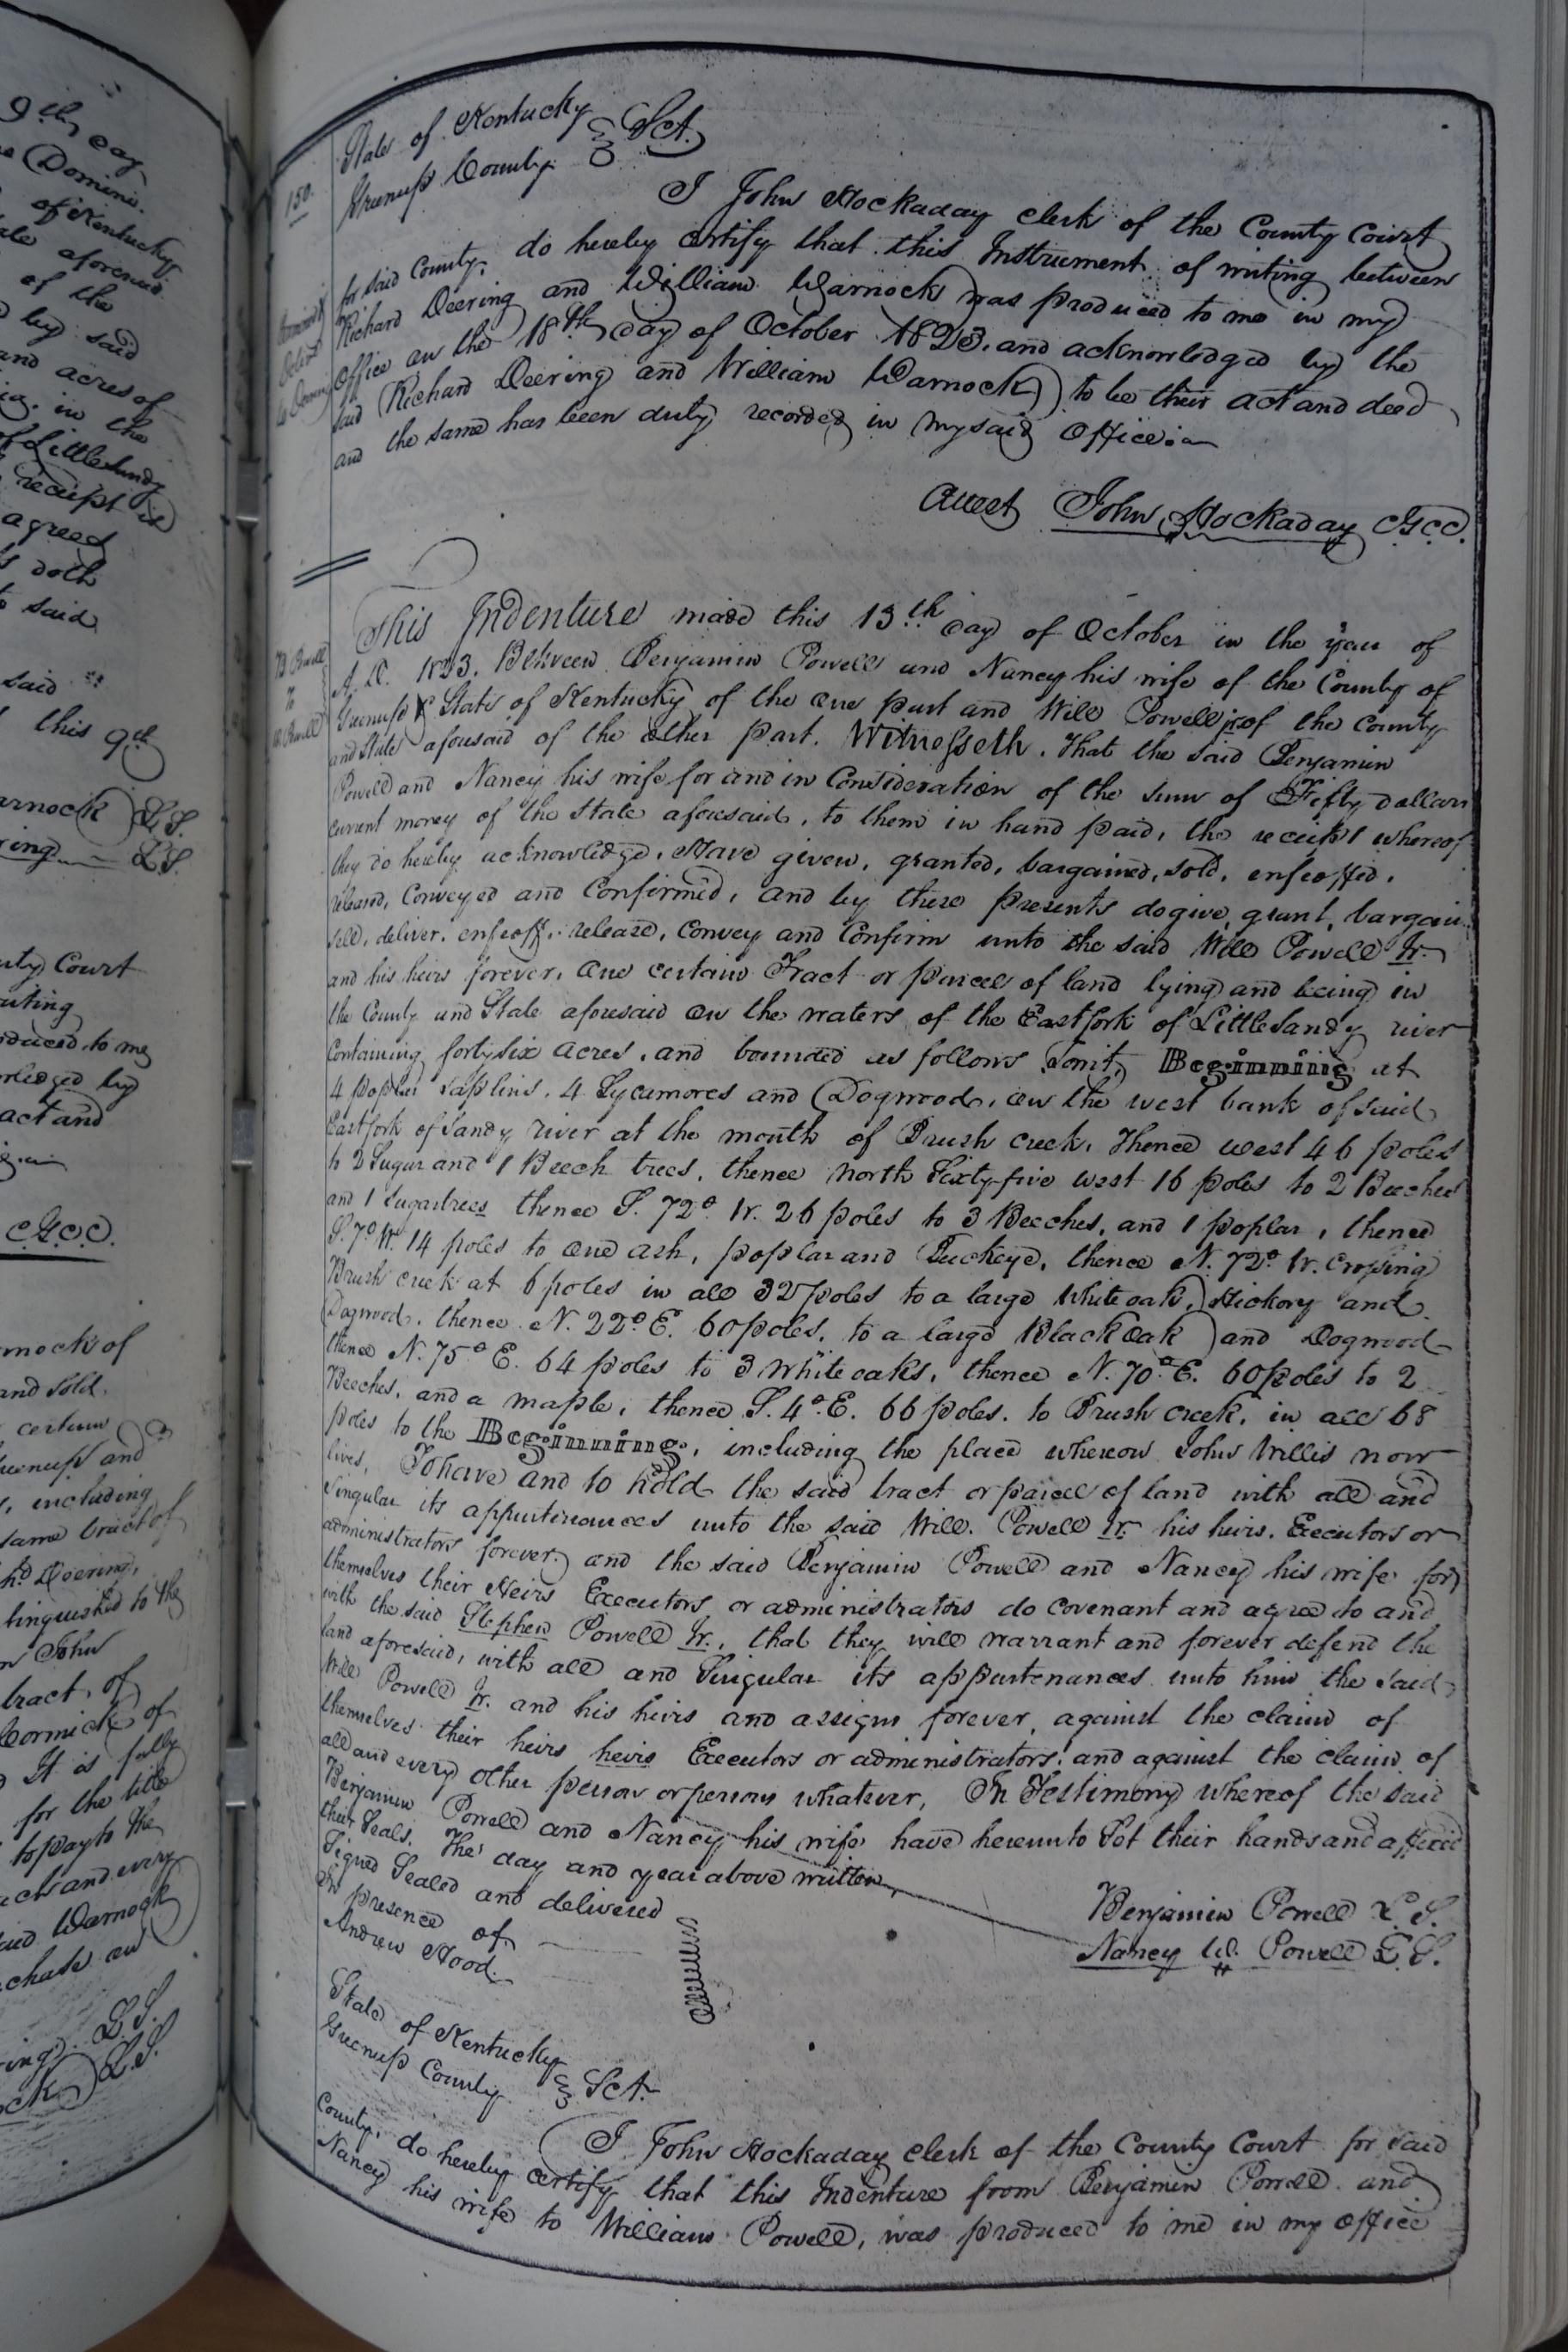 9th day
Domini.
of Kentucky
aforesaid
of the
by said
and acres of
in the
of Little Sandy
receipt is
agreed
doth
said
said
this 9th
L.S.
L.S.
Court
duced to me
by
act and
C.G.C.C.
of
and Sold.
certain
Greenup and
, including
same tract of
Deering,
linquished to the
John
tract of
Cormick of
It is fully
for the title
to pay to the
and every
said Warnock
L.S.
L.S.
150.
State of Kentucky
Greenup County Sct.
I John Hockaday clerk of the County Court
for said County, do hereby certify that this Instrument of writing between
Richard Deering and William Warnock was produced to me in my
Office on the 18th day of October 1823. and acknowledged by the
said Richard Deering and William Warnock to be their act and deed
and the same has been duly recorded in my said Office.
Attest John Hockaday G.C.C.
B. Powell
To
W. Powell
This Indenture made this 13th day of October in the year of
A. D. 1823. Between Benjamin Powell and Nancy his wife of the County of
Greenup & State of Kentucky of the one part and Will Powell jr of the County
and State aforesaid of the other part. Witnesseth. That the said Benjamin
Powell and Nancy his wife for and in Consideration of the sum of Fifty dollars
current money of the State aforesaid, to them in hand paid, the receipt whereof
they do hereby acknowledge. Have given, granted, bargained, sold, enfeoffed,
released, Conveyed and Confirmed, and by these presents do give, grant, bargain
sell, deliver, enfeoff, release, Convey and Confirm unto the said Will Powell Jr.
and his heirs forever, One certain Tract or parcel of land lying and being in
the County and State aforesaid On the waters of the East fork of Little Sandy river
Containing forty six acres, and bounded as follows Towit, Beginning at
4 poplar saplins, 4 Sycamores and Dogwood, on the west bank of said
East fork of Sandy river at the mouth of Brush creek, Thence west 46 poles
to 2 Sugar and 1 Beech trees, thence north Sixty-five west 16 poles to 2 Beeches
and 1 sugartrees thence S. 72° W. 26 poles to 3 Beeches, and 1 poplar, thence
S. 7° W. 14 poles to one ash, poplar and Buckeye, thence N. 72° W. Crossing
Brush creek at 6 poles in all 32 poles to a large White oak, Hickory and
Dogwood, thence N. 22° E. 60 poles, to a large Black Oak and Dogwood
thence N. 75° E. 64 poles to 3 white oaks, thence N. 70° E. 60 poles to 2
Beeches, and a maple, thence S. 4° E. 66 poles. to Brush creek, in all 68
poles to the Beginning, including the place whereon John Willis now
lives, To have and to hold the said tract or parcel of land with all and
Singular its appurtenances unto the said Will. Powell Jr. his heirs, Executors or
administrators forever, and the said Benjamin Powell and Nancy his wife for
themselves their Heirs Executors or administrators do covenant and agree to and
with the said Stephen Powell Jr., that they will warrant and forever defend the
land aforesaid, with all and Singular its appurtenances unto him the said
Will Powell Jr. and his heirs and assigns forever, against the claim of
themselves their heirs heirs Executors or administrators, and against the claim of
all and every other person or persons whatever, In Testimony whereof the said
Benjamin Powell and Nancy his wife have hereunto Set their hands and affixed
their Seals. The day and year above written
Signed Sealed and delivered
in presence of
Andrew Hood.
Benjamin Powell L.S.
Nancy W. Powell L.S.
State of Kentucky
Greenup County Sct.
I John Hockaday clerk of the County Court for said
County, do hereby certify that this Indenture from Benjamin Powell and
Nancy his wife to William Powell, was produced to me in my office